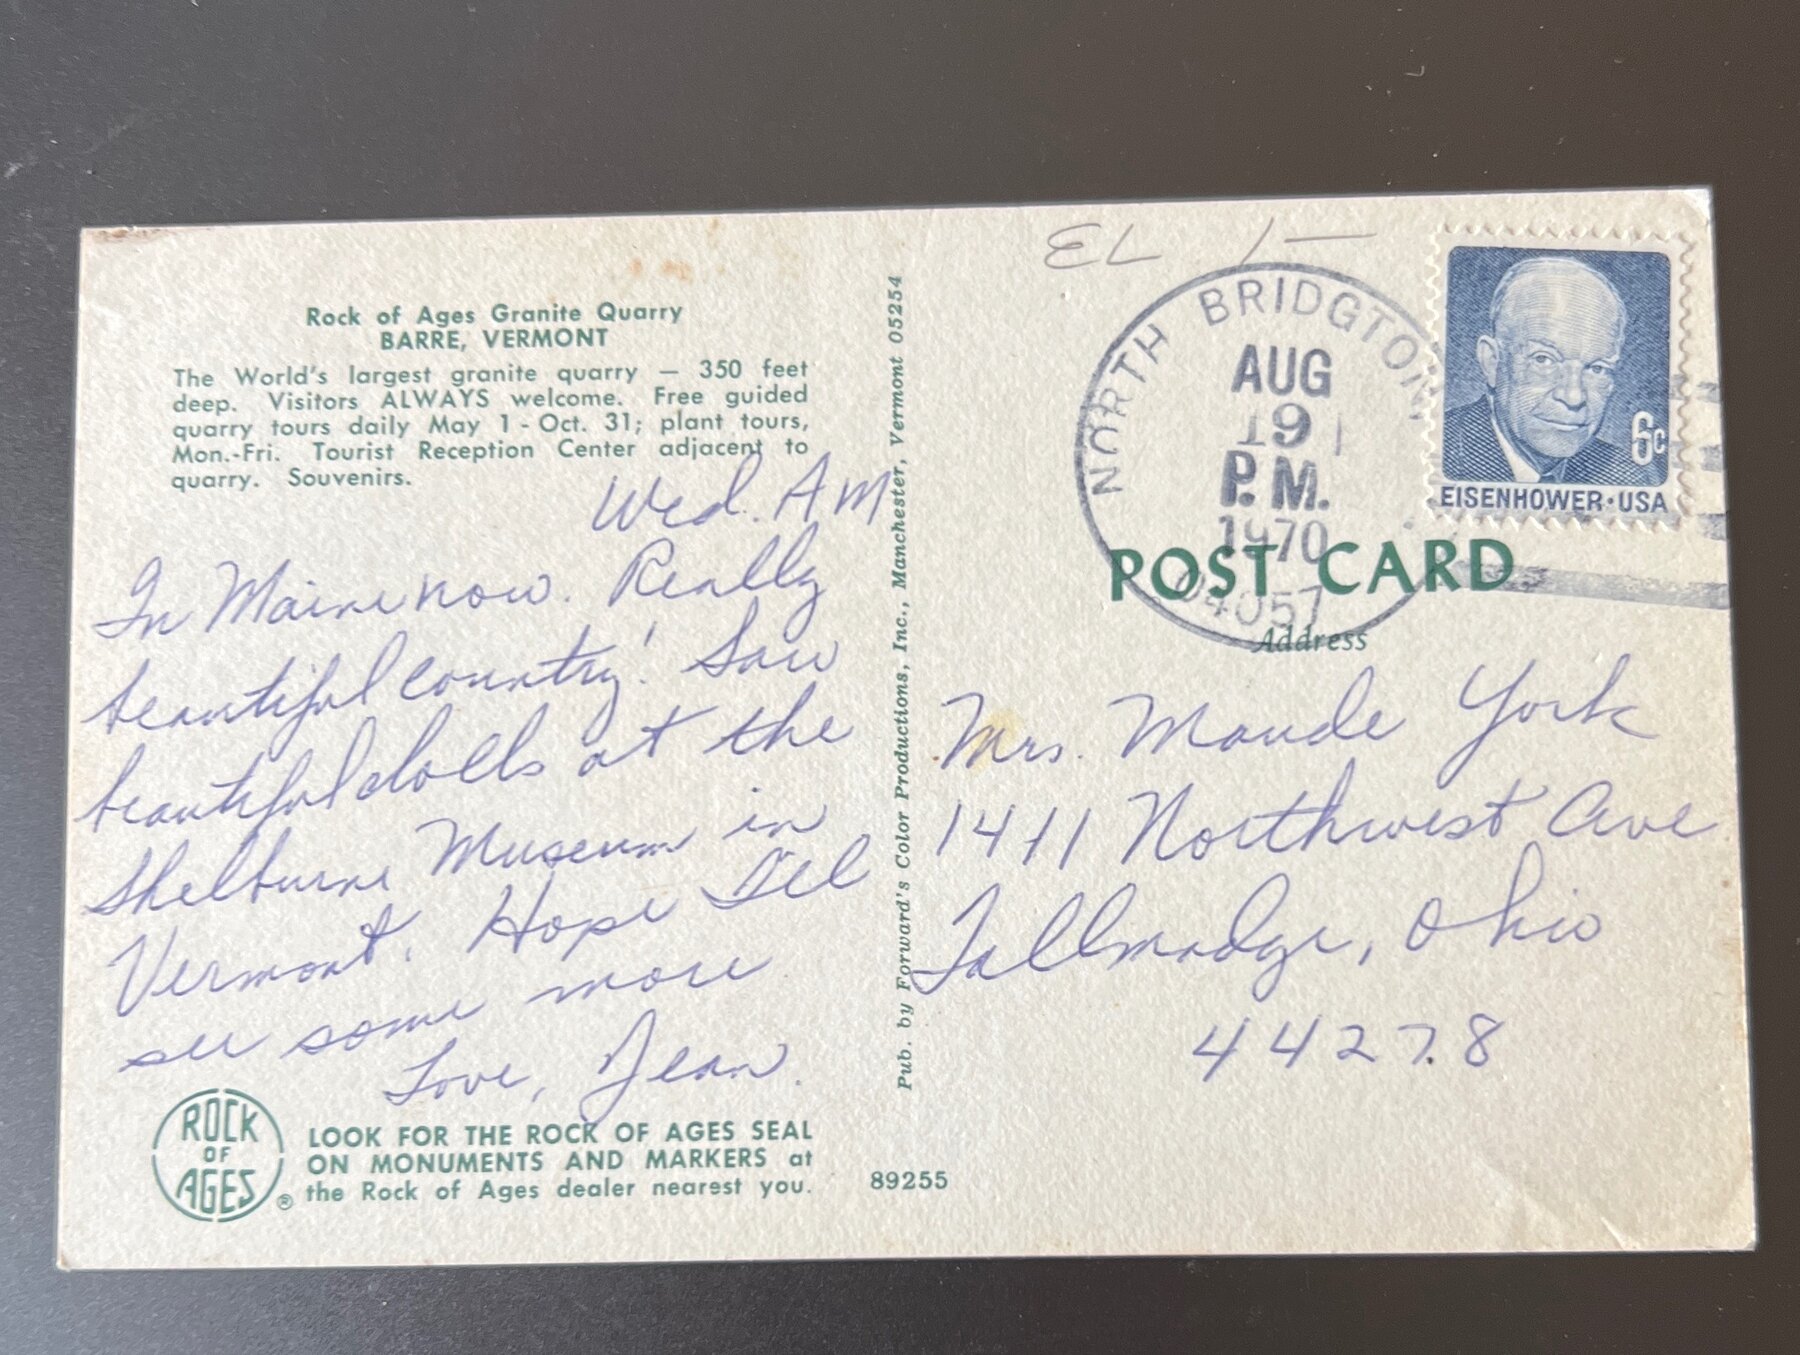 Rock of Ages Granite Quarry
BARRE, VERMONT
The World's largest granite quarry — 350 feet
deep. Visitors ALWAYS welcome. Free guided
quarry tours daily May 1 - Oct. 31; plant tours,
Mon.-Fri. Tourist Reception Center adjacent to
quarry. Souvenirs.
Wed. AM
In Maine now. Really
beautiful country! Saw
beautiful dolls at the
Shelburne Museum in
Vermont. Hope I'll
see some more
Love, Jean.
ROCK
OF
AGES
®
LOOK FOR THE ROCK OF AGES SEAL
ON MONUMENTS AND MARKERS at
the Rock of Ages dealer nearest you.
89255
Pub. by Forward's Color Productions, Inc., Manchester, Vermont 05254
EL 1—
NORTH BRIDGTON
AUG
19
P.M.
1970
04057
6c
EISENHOWER·USA
POST CARD
Address
Mrs. Maude York
1411 Northwest Ave
Tallmadge, Ohio
44278